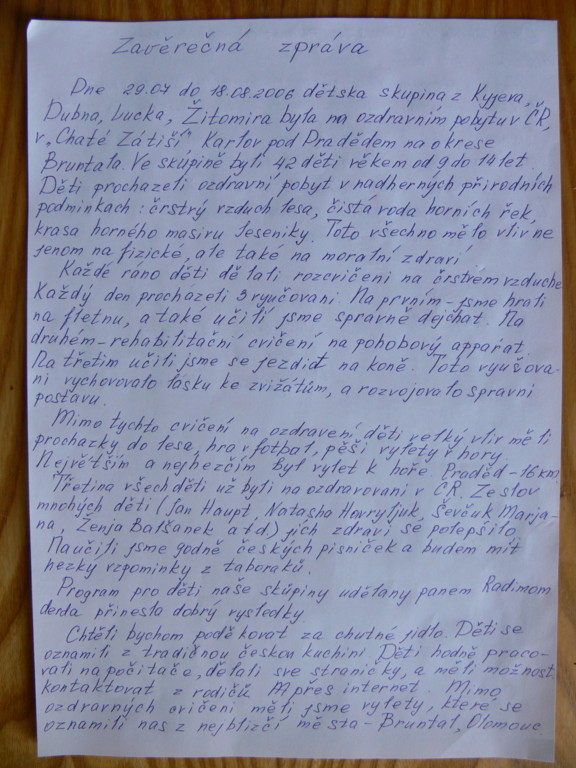 Zavěrečná zpráva
Dne 29.07 do 18.08.2006 dětska skupina z Kyjeva,
Dubna, Lucka, Žitomira byla na ozdravním pobytu v ČR,
v „Chatě Zátiší" Karlov pod Pradědem na okrese
Bruntála. Ve skúpině byli 42 děti věkem od 9 do 14 let.
Děti prochazeli ozdravní pobyt v nadherných přirodních
podminkach: črstvý vzduch lesa, čistá voda horních řek,
krasa horného masivu Jeseniky. Toto všechno mělo vliv ne
jenom na fizické, ale také na moralní zdraví.
Každé ráno děti dělali rozcvičeni na črstvém vzduche.
Každý den prochazeli 3 vyučovani. Na prvním - jsme hrali
na fletnu, a také učili jsme spravně dejchat. Na
druhém - rehabilitační cvičení na pohobový apparat.
Na třetim učili jsme se jezdit na koně. Toto vyušova-
ni vychovovalo lásku ke zvižátům, a rozvojovalo spravni
postavu.
Mimo tychto cvičení na ozdravení, děti velký vliv měli
prochazky do lesa, hra v fotbal, pěši vylety v hory.
Největším a nejhezčim byl vylet k hoře Praděd - 16 km.
Třetina všech děti už byli na ozdravovani v ČR. Ze slov
mnohých děti (Jan Haupt, Natasha Havryljuk, Ševčuk Marja-
na, Ženja Balšanek a td.) jich zdravi se polepšilo.
Naučili jsme godně českých pisniček a budem mít
hezký vzpominky z taboraků.
Program pro děti naše skúpiny udělany panem Radimom
derda přineslo dobrý vysledky.
Chtěli bychom poděkovat za chutné jidlo. Děti se
oznamili z tradičnou českou kuchini. Děti hodně praco-
vali na počitače, dělali sve straničky, a měli možnost
kontaktovat z rodičů přes internet. Mimo
ozdravných cvičeni měli jsme vylety, které se
oznamili nas z nejblizčí města - Bruntal, Olomouc